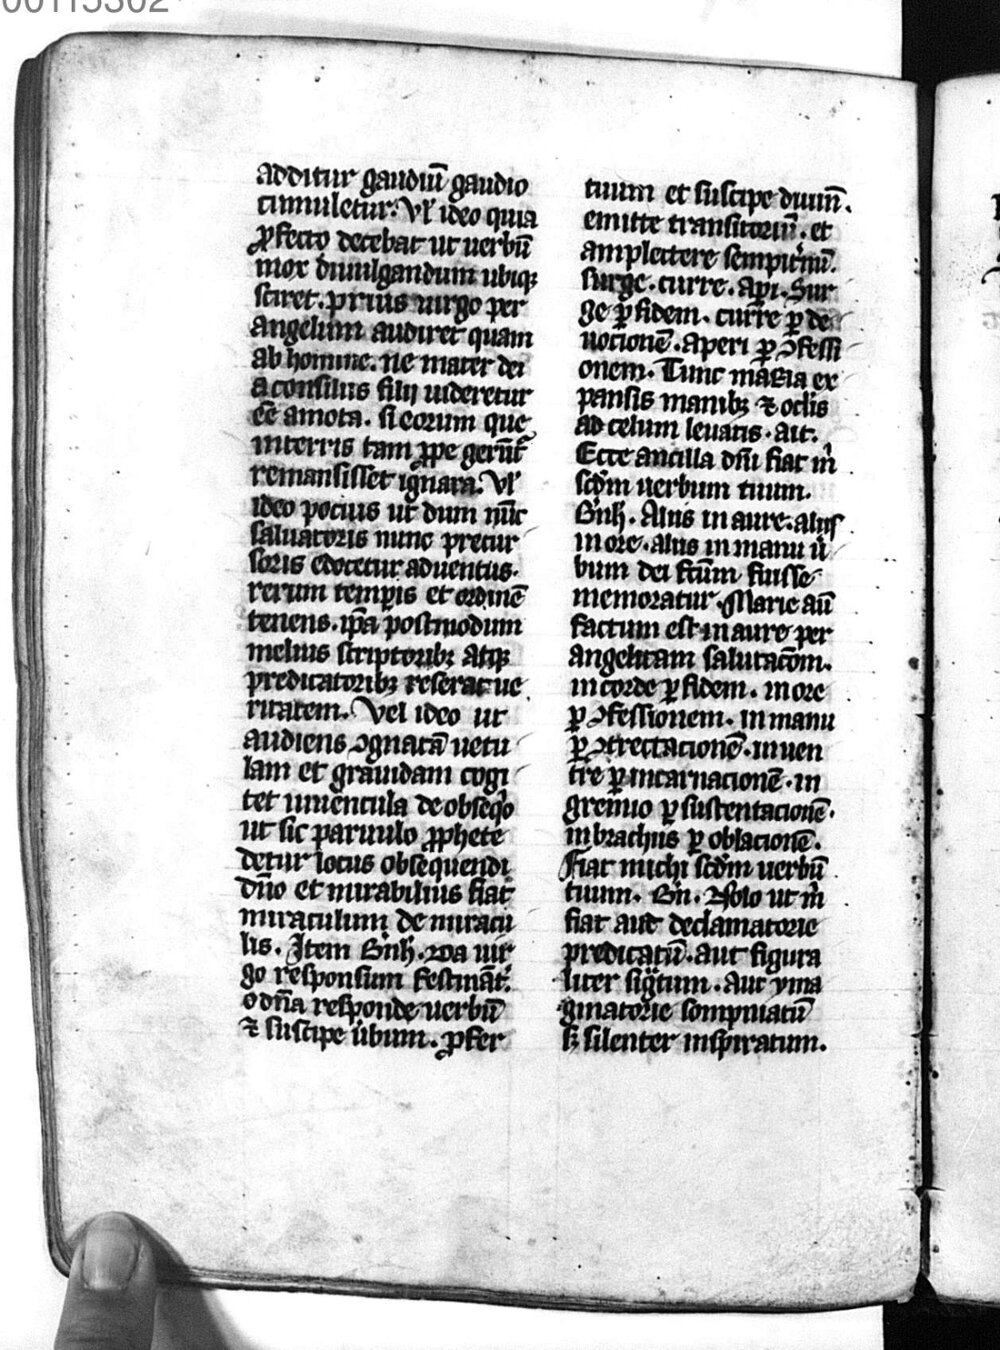 additur gaudiū gaudio
cumuletur. Vl̄ ideo quia
ꝓfecto decebat ut uerbū
mox diuulgandum ubiqꝫ
sciret. prius uirgo per
angelum audiret quam
ab homine. ne mater dei
a consiliis filij uideretur
eē amota. si eorum que
interris tam ꝓpe gerūt᷒
remansisset ignara. Vl̄
ideo pocius ut dum nūc
saluatoris nunc precur
soris edocetur aduentus.
rerum temꝑis et ordinē
tenens. ip̄a postmodum
melius scriptoribꝫ atqꝫ
predicatoribꝫ reserat ue
ritatem. Vel ideo ut
audiens ꝯgnatā uetu
lam et grauidam cogi
tet iuuencula de obseq̇o
ut sic paruulo ꝓphete
detur locus obsequendi
dn̄o et mirabilius fiat
miraculum de miracu
lis. Item Bnħ. Da uir
go responsum festināt᷒.
o dn̄a responde uerbū
⁊ suscipe ůbum. ꝓfer
tuum et suscipe diuin̄.
emitte transitoriū. et
amplectere sempit᷒nū.
surge. curre. ap̲i. Sur
ge ꝑ fidem. curre ꝑ de
uocionē. aperi ꝑ ꝯfessi
onem. Tunc maria ex
pansis manibꝫ ⁊ oclis
ad celum leuatis. ait.
Ecce ancilla dn̄i fiat m̍
scd̄m uerbum tuum.
Bnħ. Aliis in aure. aliis
in ore. aliis in manu ů
bum dei fc̄um fuisse
memoratur. Marie aū
factum est in aure per
angelicam salutac̄om.
in corde ꝑ fidem. in ore
ꝑ ꝯfessionem. in manu
ꝑ ꝯtrectacionē. in uen
tre ꝑ incarnacionē. in
gremio ꝑ sustentacionē.
in brachiis ꝑ oblacionē.
Fiat michi scd̄m uerbū
tuum. Bn̄. Nolo ut m̍
fiat aut declamatorie
predicatū. aut figura
liter sig̅tum. aut yma
ginatorie sompniatū
sꝫ silenter inspiratum.